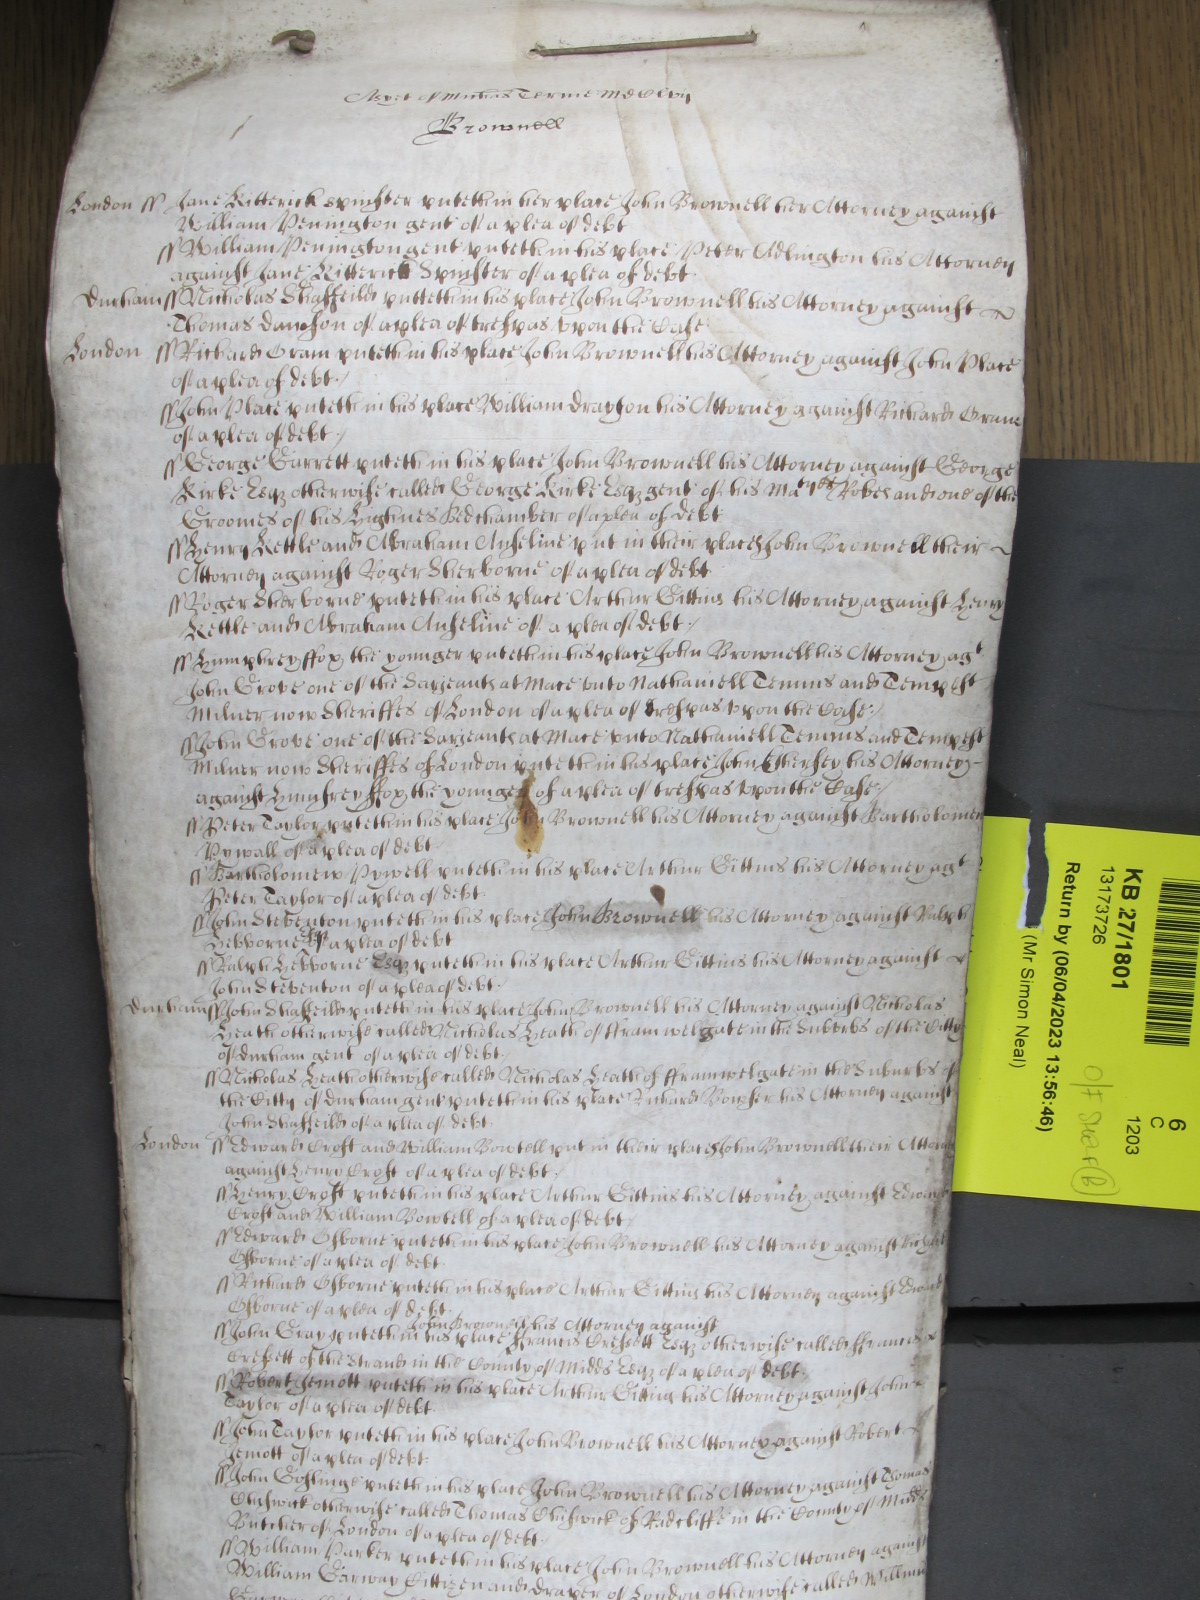 Yet of Micħas Terme MDCLvij
Brownell
London ss Jane Kitterick spinster putteth in her place John Brownell her Attorney against
William Penington gent of a plea of debt
ss William Penington gent putteth in his place Peter Adlington his Attorney
against Jane Kitterick Spinster of a plea of debt
Durham ss Nicholas Shaffeild putteth in his place John Brownell his Attorney against
Thomas Dawson of a plea of trespas upon the Case
London ss Richard Gram putteth in his place John Brownell his Attorney against John Place
of a plea of debt
ss John Place putteth in his place William Drayton his Attorney against Richard Grame
of a plea of debt
ss George Garrett putteth in his place John Brownell his Attorney against George
Kirke Esqz otherwise called George Kirke Esqz gent of his Ma^ties Robes and one of the
Groomes of his Highnes Bedchamber of a plea of debt
ss Henry Kettle and Abraham Anseline put in their places John Brownell their
Attorney against Roger Sherborne of a plea of debt
ss Roger Sherborne putteth in his place Arthur Gittins his Attorney against Henry
Kettle and Abraham Anseline of a plea of debt
ss Humphrey ffox the younger putteth in his place John Brownell his Attorney ag^t
John Grove one of the Sarjeants at Mace unto Nathaniell Temms and Tempest
Milner now Sheriffes of London of a plea of trespas upon the Case
ss John Grove one of the Sarjeants at Mace unto Nathaniell Temms and Tempest
Milner now Sheriffes of London putteth in his place John his Attorney
against Humfrey ffox the younger of a plea of trespas upon the Case
ss Peter Taylor putteth in his place John Brownell his Attorney against Bartholomew
Pywall of a plea of debt
ss Bartholomew Pywell putteth in his place Arthur Gittins his Attorney ag^t
Peter Taylor of a plea of debt
ss John Steventon putteth in his place John Brownell his Attorney against Ralph
Hebborne Esqz of a plea of debt
ss Ralph Hebborne Esqz putteth in his place Arthur Gittins his Attorney against
John Steventon of a plea of debt
Durham ss John Shaffeild putteth in his place John Brownell his Attorney against Nicholas
Heath otherwise called Nicholas Heath of fframwelgate in the Suburbs of the Citty
of Durham gent of a plea of debt
ss Nicholas Heath otherwise called Nicholas Heath of fframwelgate in the Suburbs of
the Citty of Durham gent putteth in his place Richard Bowser his Attorney against
John Shaffeild of a plea of debt
London ss Edward Croft and William Bowtell put in their places John Brownell their Attorn
against Henry Croft of a plea of debt
ss Henry Croft putteth in his place Arthur Gittins his Attorney against Edward
Croft and William Bowtell of a plea of debt
ss Edward Osborne putteth in his place John Brownell his Attorney against Richard
Osborne of a plea of debt
ss Richard Osborne putteth in his place Arthur Gittins his Attorney against Edward
Osborne of a plea of debt
John Brownell his Attorney against
ss John Gray putteth in his place ffrancis Cressett Esqz otherwise called ffrancis
Cressett of the Strand in the County of Midds Esqz of a plea of debt
ss Robert Jemott putteth in his place Arthur Gittins his Attorney against John
Taylor of a plea of debt
ss John Taylor putteth in his place John Brownell his Attorney against Robert
Jemott of a plea of debt
ss John Goslinge putteth in his place John Brownell his Attorney against Thomas
Chiswick otherwise called Thomas Chiswick of Radcliffe in the County of Midds
Butcher of London of a plea of debt
ss William Parker putteth in his place John Brownell his Attorney against
William Garway Cittizen and draper of London otherwise called William
KB 27/1801
13173726
Return by (06/04/2023 13:56:46)
(Mr Simon Neal)
6
C
1203
O/S Shelf (B)